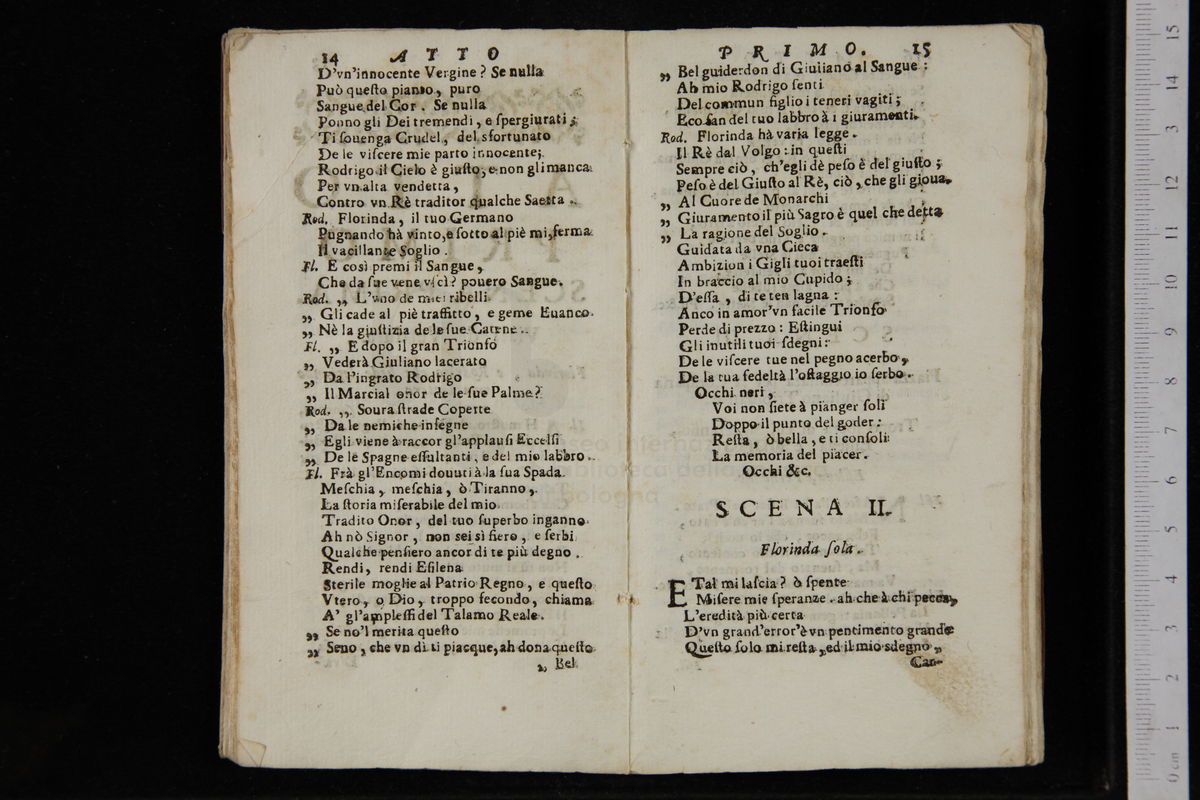 14 ATTO
D'vn'innocente Vergine? Se nulla
Può questo pianto, puro
Sangue del Cor. Se nulla
Ponno gli Dei tremendi, e spergiurati;
Ti souenga Crudel, del sfortunato
De le viscere mie parto innocente;
Rodrigo il Cielo è giusto, e non gli manca
Per vn alta vendetta,
Contro vn Rè traditor qualche Saetta.
Rod. Florinda, il tuo Germano
Pugnando hà vinto, e sotto al piè mi ferma
Il vacillante Soglio.
Fl. E così premi il Sangue,
Che da sue vene vscì? pouero Sangue.
Rod. ,, L'vno de miei ribelli
,, Gli cade al piè traffitto, e geme Euanco
,, Nè la giustizia de le sue Catene.
Fl. ,, E dopo il gran Trionfo
,, Vederà Giuliano lacerato
,, Da l'ingrato Rodrigo
,, Il Marcial onor de le sue Palme?
Rod. ,, Soura strade Coperte
,, Da le nemiche insegne
,, Egli viene à raccor gl'applausi Eccelsi
,, De le Spagne essultanti, e del mio labbro.
Fl. Frà gl'Encomi douuti à la sua Spada
Meschia, meschia, ò Tiranno,
La storia miserabile del mio
Tradito Onor, del tuo superbo inganno.
Ah nò Signor, non sei sì fiero, e serbi
Qualche pensiero ancor di te più degno.
Rendi, rendi Esilena
Sterile moglie al Patrio Regno, e questo
Vtero, o Dio, troppo fecondo, chiama
A' gl'amplessi del Talamo Reale.
,, Se no'l merita questo
,, Seno, che vn dì ti piacque, ah dona questo
,, Bel
PRIMO. 15
,, Bel guiderdon di Giuliano al Sangue:
Ah mio Rodrigo senti
Del commun figlio i teneri vagiti;
Eco fan del tuo labbro à i giuramenti.
Rod. Florinda hà varia legge.
Il Rè dal Volgo: in questi
Sempre ciò, ch'egli dè peso è del giusto;
Peso è del Giusto al Rè, ciò, che gli gioua.
,, Al Cuore de Monarchi
,, Giuramento il più Sagro è quel che detta
,, La ragione del Soglio.
Guidata da vna Cieca
Ambizion i Gigli tuoi traesti
In braccio al mio Cupido;
D'essa, di te ten lagna:
Anco in amor'vn facile Trionfo
Perde di prezzo: Estingui
Gli inutili tuoi sdegni:
De le viscere tue nel pegno acerbo,
De la tua fedeltà l'ostaggio io serbo.
Occhi neri,
Voi non siete à pianger soli
Doppo il punto del goder:
Resta, ò bella, e ti consoli
La memoria del piacer.
Occhi &c.
SCENA II.
Florinda sola.
E Tal mi lascia? ò spente
Misere mie speranze. ah che à chi pecca,
L'eredità più certa
D'vn grand'error'è vn pentimento grande
Questo solo mi resta, ed il mio sdegno,
Can-